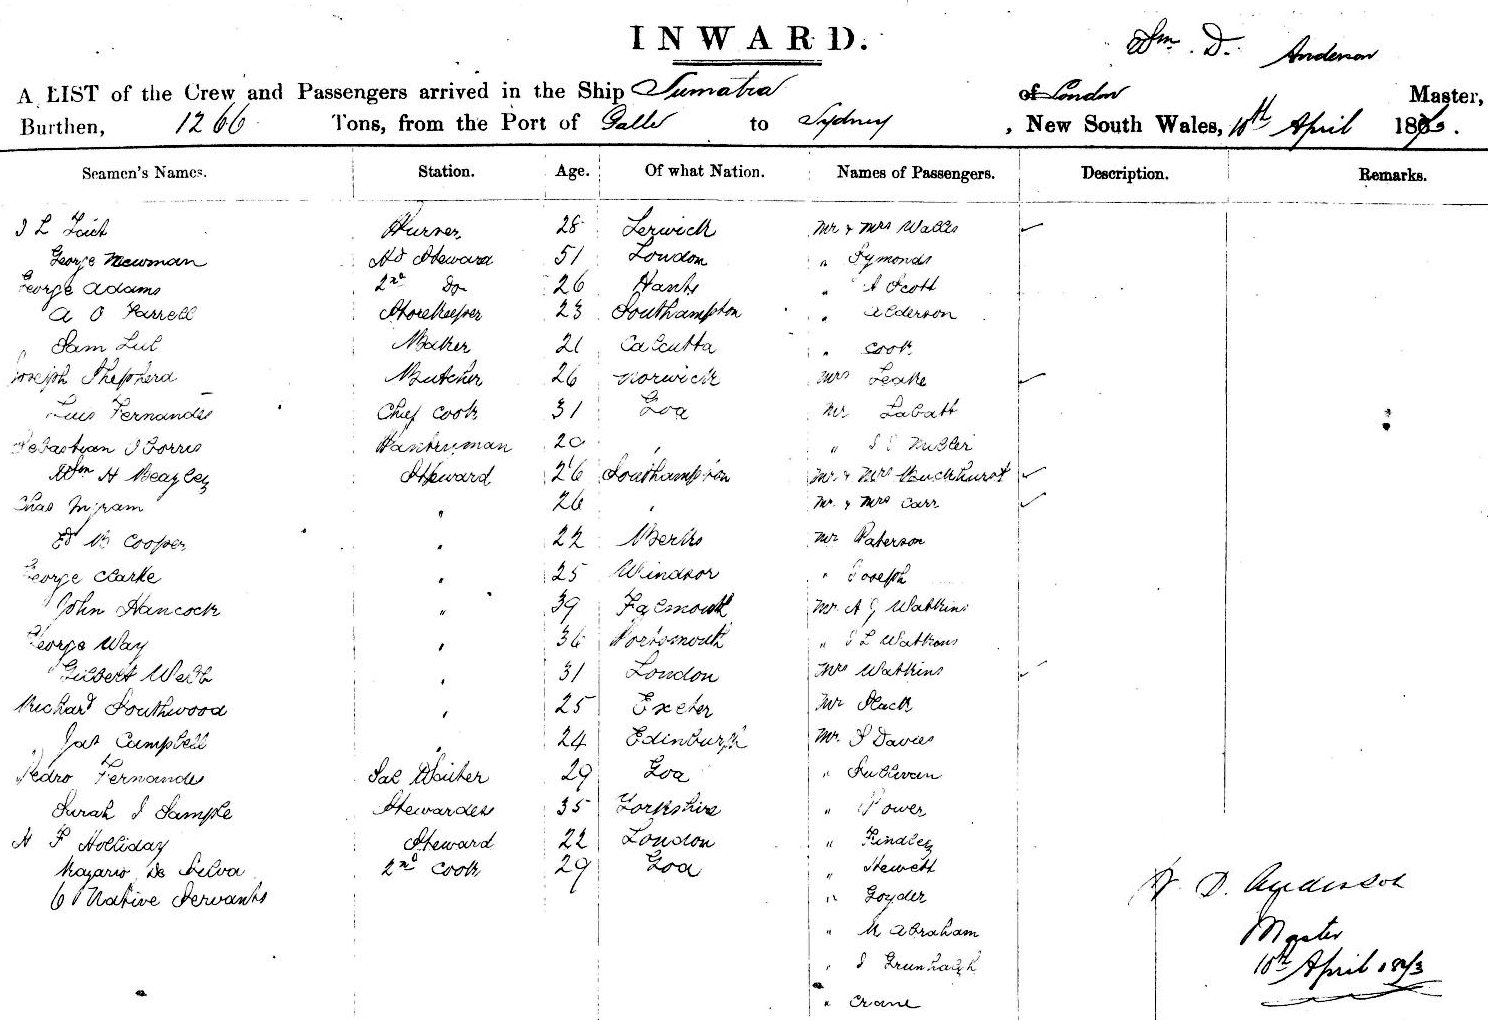 INWARD.
Wm. D. Anderson
A LIST of the Crew and Passengers arrived in the Ship Sumatra of London Master,
Burthen, 1266 Tons, from the Port of Galle to Sydney, New South Wales, 10th April 1873.
Seamen's Names. Station. Age. Of what Nation. Names of Passengers. Description. Remarks.
J L Tait Purser 28 Lerwick Mr & Mrs Wallis ✓
George Newman Hd Steward 51 London " Symonds
George Adams 2nd Do 26 Hants " A Scott
A O Farrell Storekeeper 23 Southampton " Alderson
Sam Lul Baker 21 Calcutta " Cook
Joseph Shepherd Butcher 26 Norwich Mrs Leake ✓
Luis Fernandes Chief Cook 31 Goa Mr Labatt
Sebastian J Torris Pantryman 20 " " Miller
Wm H Beazley Steward 26 Southampton Mr & Mrs Buckhurst ✓
Chas Ingram " 26 " Mr & Mrs Carr ✓
Ed B Cooper " 22 Berks Mr Paterson
George Clarke " 25 Windsor " Joseph
John Hancock " 39 Falmouth Mr A J Watkins
George Way " 36 Portsmouth " J L Watkins
Gilbert Webb " 31 London Mrs Watkins ✓
Richard Southwood " 25 Exeter Mr Slack
Jas Campbell " 24 Edinburgh Mr. J Davies
Pedro Fernandes Sal Waiter 29 Goa " Sullivan
Sarah J Sample Stewardess 35 Yorkshire " Power
H F Holliday Steward 22 London " Findley
Nazario De Selva 2nd Cook 29 Goa " Hewett
6 Native Servants " Goyder
W. D. Anderson
" M Abraham
Master
" J
10th April 1873
" Crane